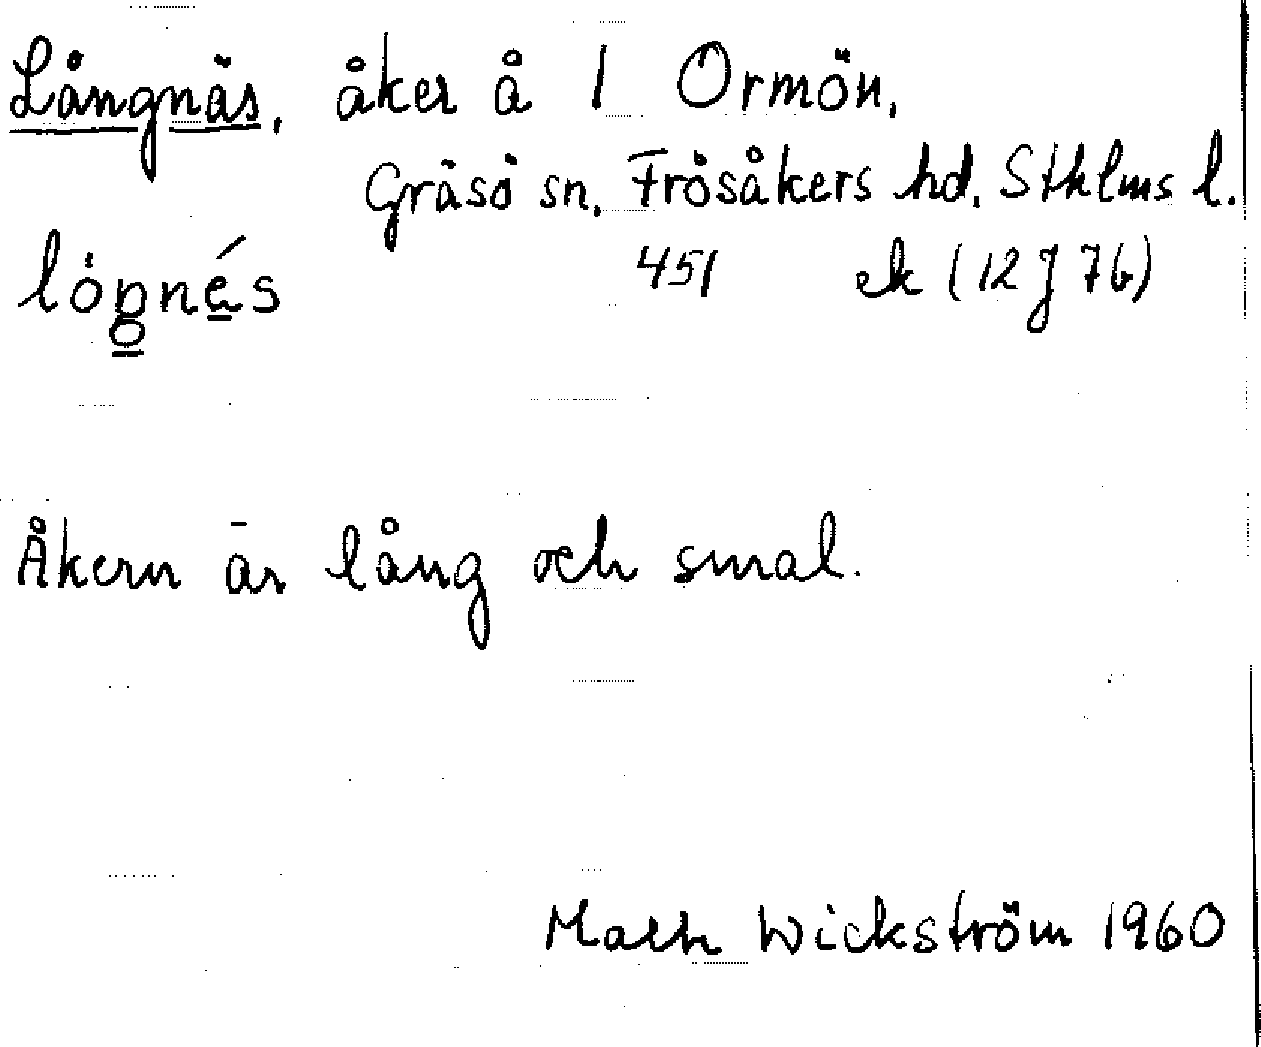 Långnäs, åker å 1 Ormön,
Gräsö sn. Frösåkers hd. Sthlms l.
451 ek (12 J 7b)
Åkern är lång och smal.
Wickström 1960